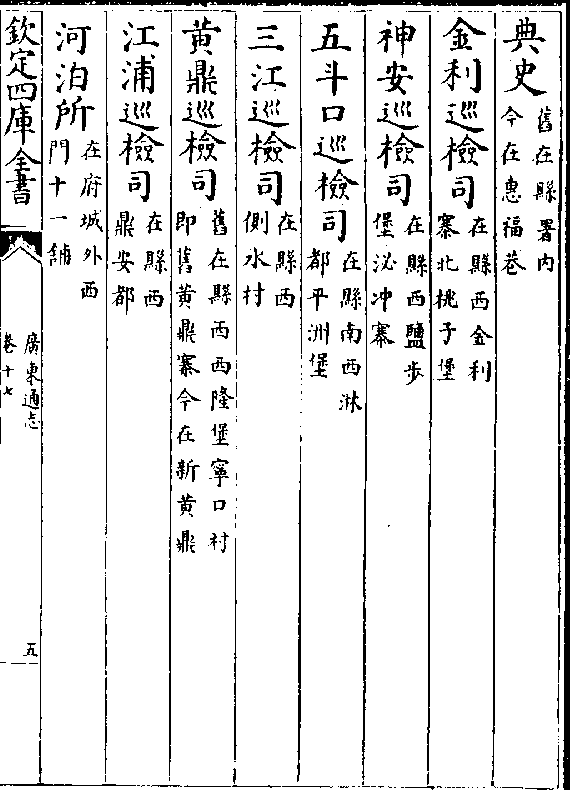 典史 舊在縣署内今在惠福巷
金利巡檢司 在縣西金利寨北桃子堡
神安巡檢司 在縣西鹽步堡泌冲寨
五斗口巡檢司 在縣南西淋都平洲堡
三江巡檢司 在縣西側水村
黄鼎巡檢司 舊在縣西西隆堡寧口村即舊黄鼎寨今在新黄鼎
江浦巡檢司 在縣西鼎安都
河泊所 在府城外西門十一舖
欽定四庫全書
廣東通志
卷十七
五